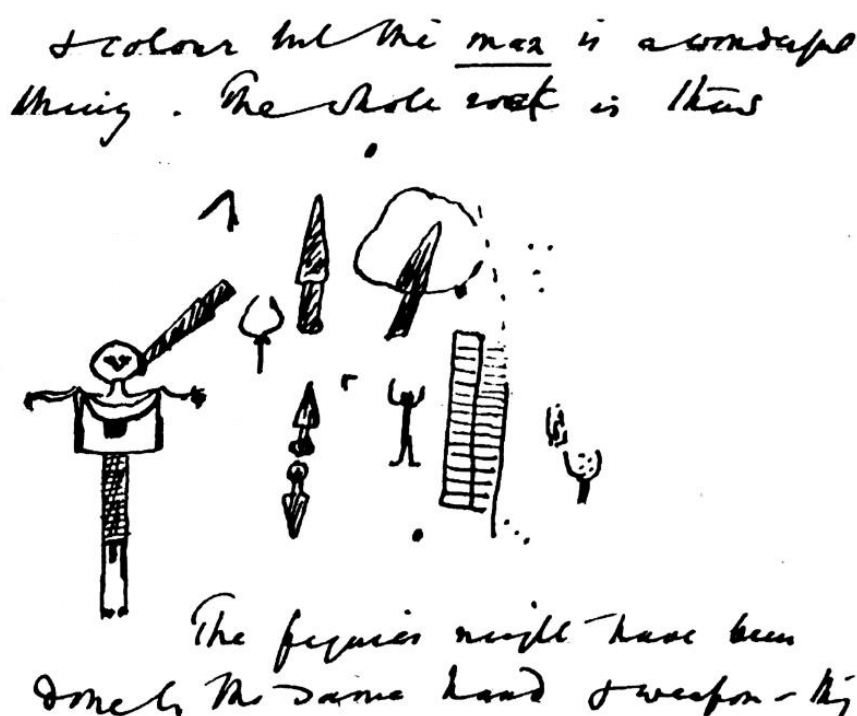 & colour but the man is a wonderful
thing. The whole rock is thus
The figures might have been
done by the same hand & weapon -